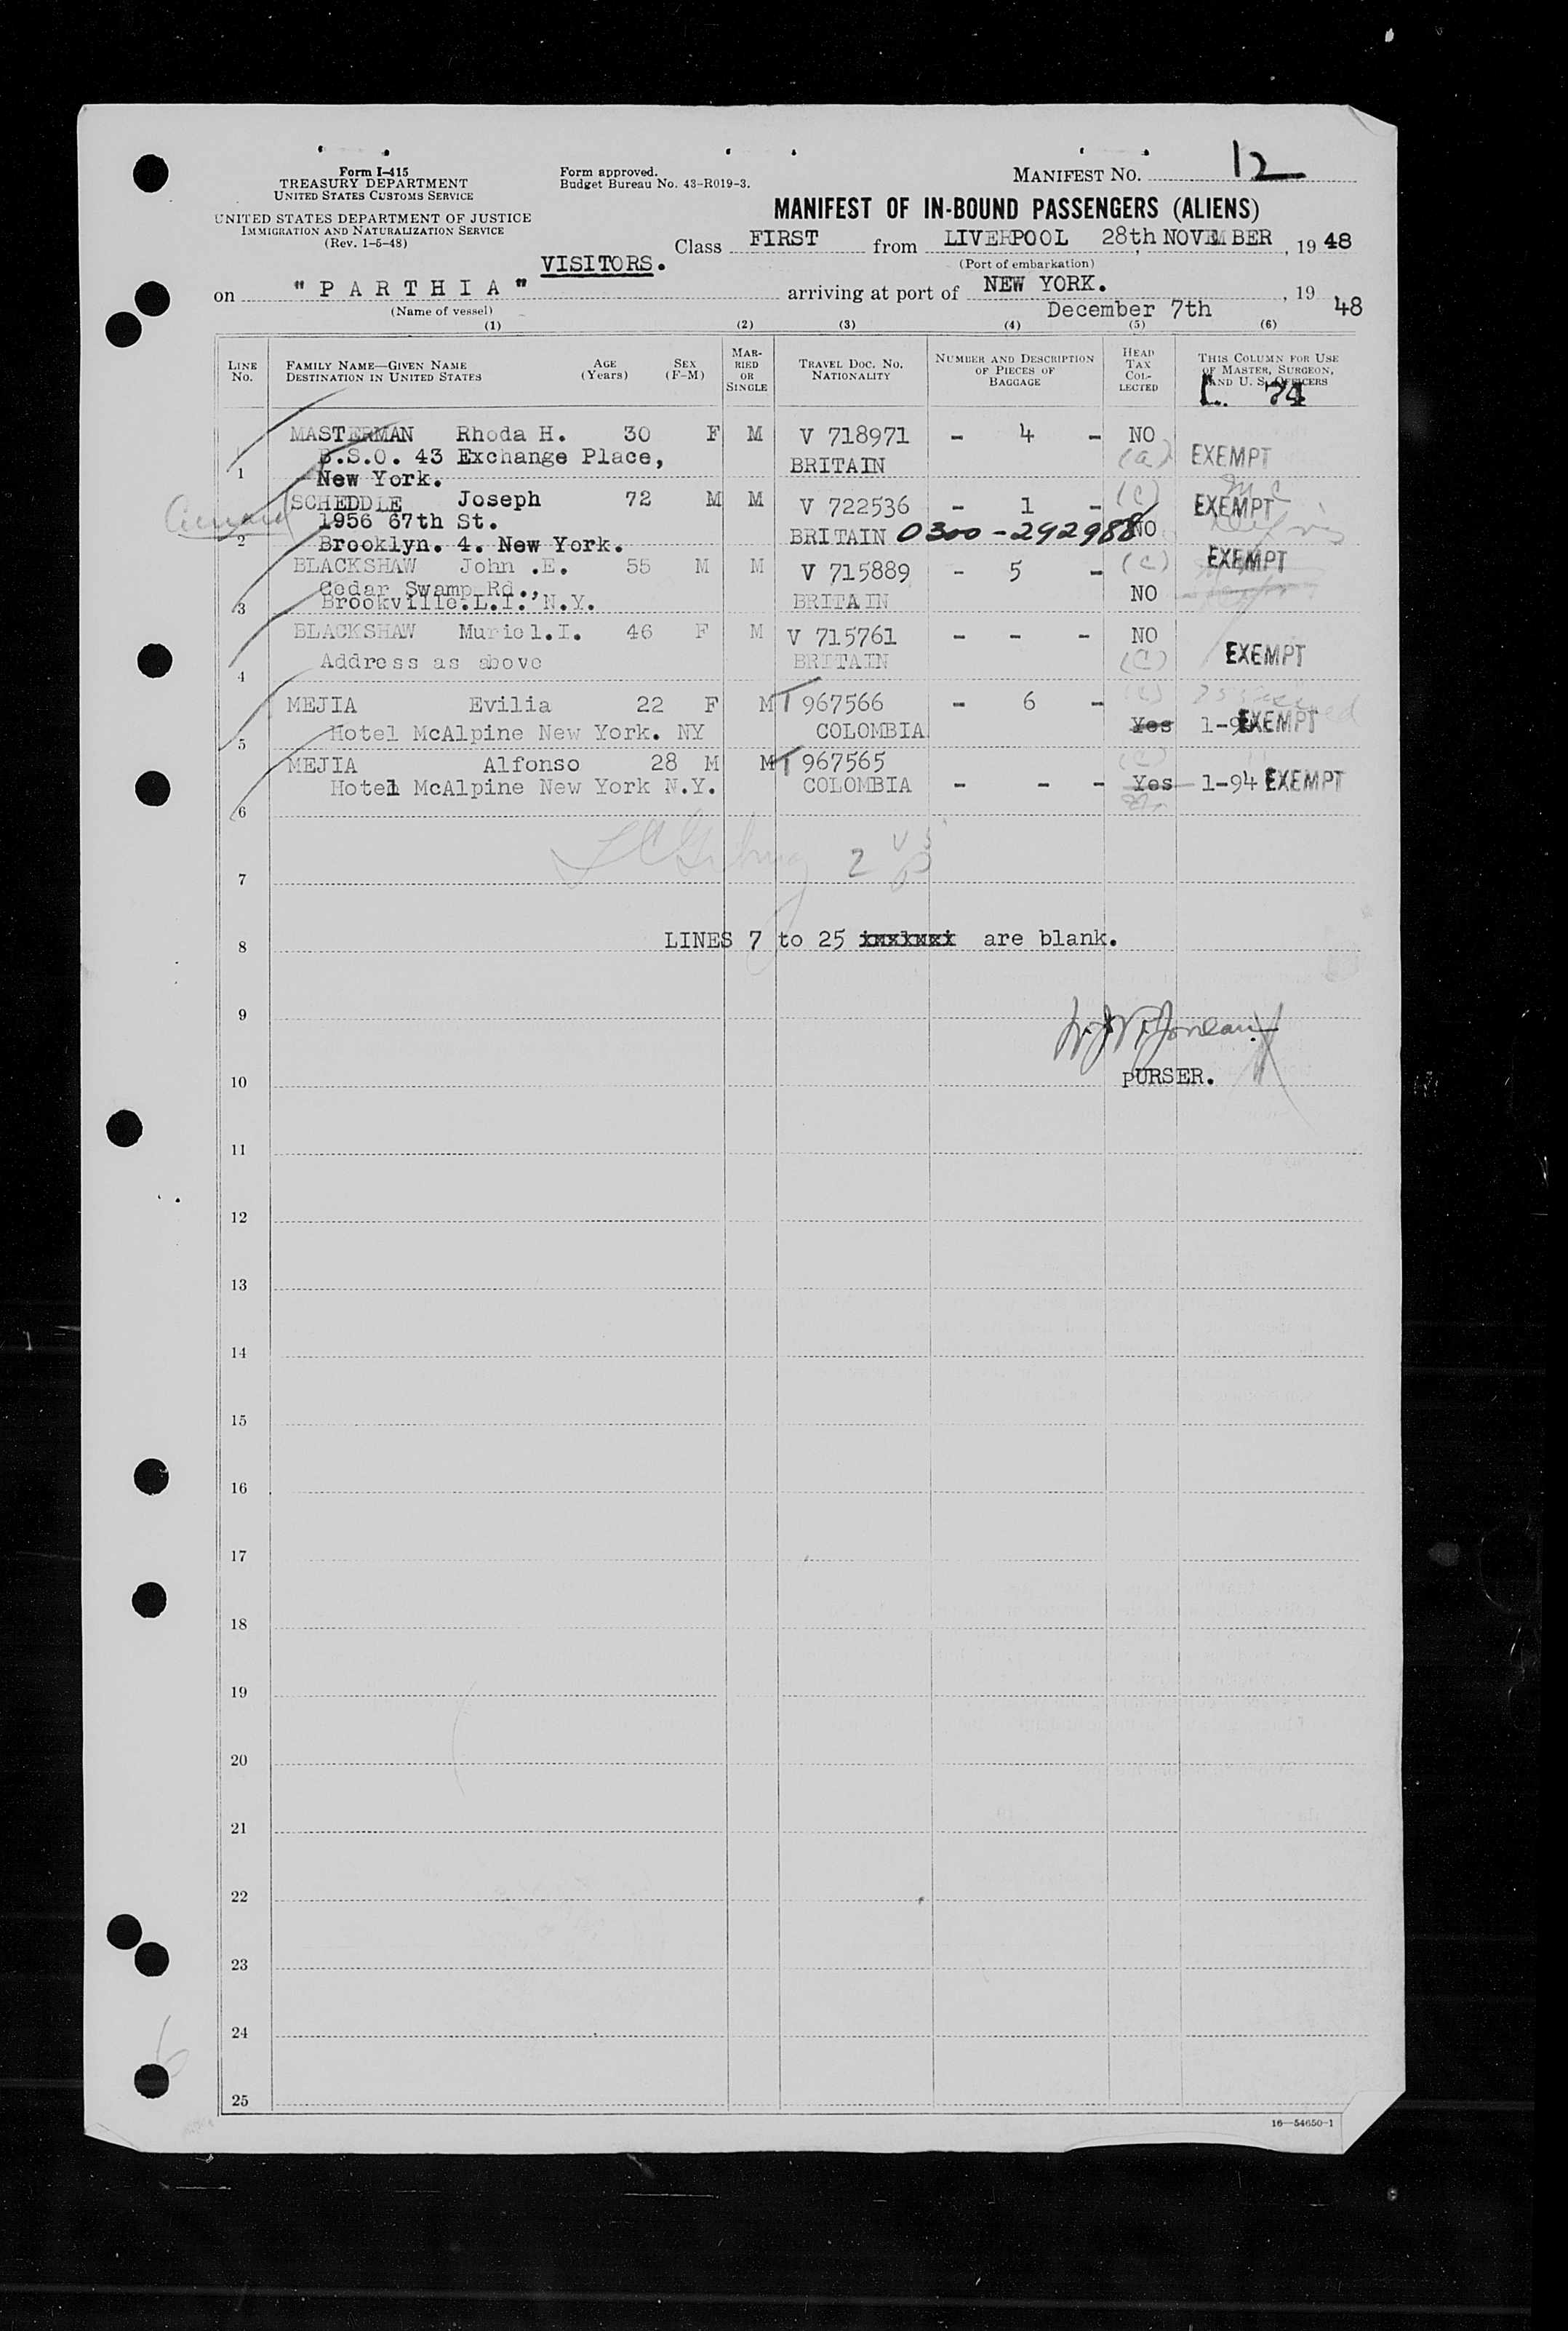 Form I-415
TREASURY DEPARTMENT
UNITED STATES CUSTOMS SERVICE
UNITED STATES DEPARTMENT OF JUSTICE
IMMIGRATION AND NATURALIZATION SERVICE
(Rev. 1-5-48)
Form approved.
Budget Bureau No. 43-R019-3.
MANIFEST NO. 12
MANIFEST OF IN-BOUND PASSENGERS (ALIENS)
Class FIRST from LIVERPOOL 28th NOVEMBER, 1948
(Port of embarkation)
VISITORS.
on "PARTHIA" arriving at port of NEW YORK. , 19 48
(Name of vessel) December 7th
(1) (2) (3) (4) (5) (6)
LINE NO. FAMILY NAME—GIVEN NAME DESTINATION IN UNITED STATES AGE (Years) SEX (F-M) MARRIED OR SINGLE TRAVEL DOC. NO. NATIONALITY NUMBER AND DESCRIPTION OF PIECES OF BAGGAGE HEAD TAX COLLECTED THIS COLUMN FOR USE OF MASTER, SURGEON, AND U. S. OFFICERS
L. 74
MASTERMAN Rhoda H. 30 F M V 718971 - 4 - NO
B.S.O. 43 Exchange Place, BRITAIN (a) EXEMPT
1 New York.
SCHEDDLE Joseph 72 M M V 722536 - 1 - (C) EXEMPT
1956 67th St. BRITAIN 0300-292988 NO
2 Brooklyn. 4. New York.
BLACKSHAW John .E. 55 M M V 715889 - 5 - (C) EXEMPT
Cedar Swamp Rd., BRITAIN NO
3 Brookville.L.I. N.Y.
BLACKSHAW Muriel.I. 46 F M V 715761 - - - NO
4 Address as above BRITAIN (C) EXEMPT
MEJIA Evilia 22 F M T 967566 - 6 -
5 Hotel McAlpine New York. NY COLOMBIA Yes 1-94 EXEMPT
MEJIA Alfonso 28 M M T 967565 (C)
6 Hotel McAlpine New York N.Y. COLOMBIA - - - Yes 1-94 EXEMPT
7
8 LINES 7 to 25 are blank.
9
10 PURSER.
11
12
13
14
15
16
17
18
19
20
21
22
23
24
25
6
16—54650-1